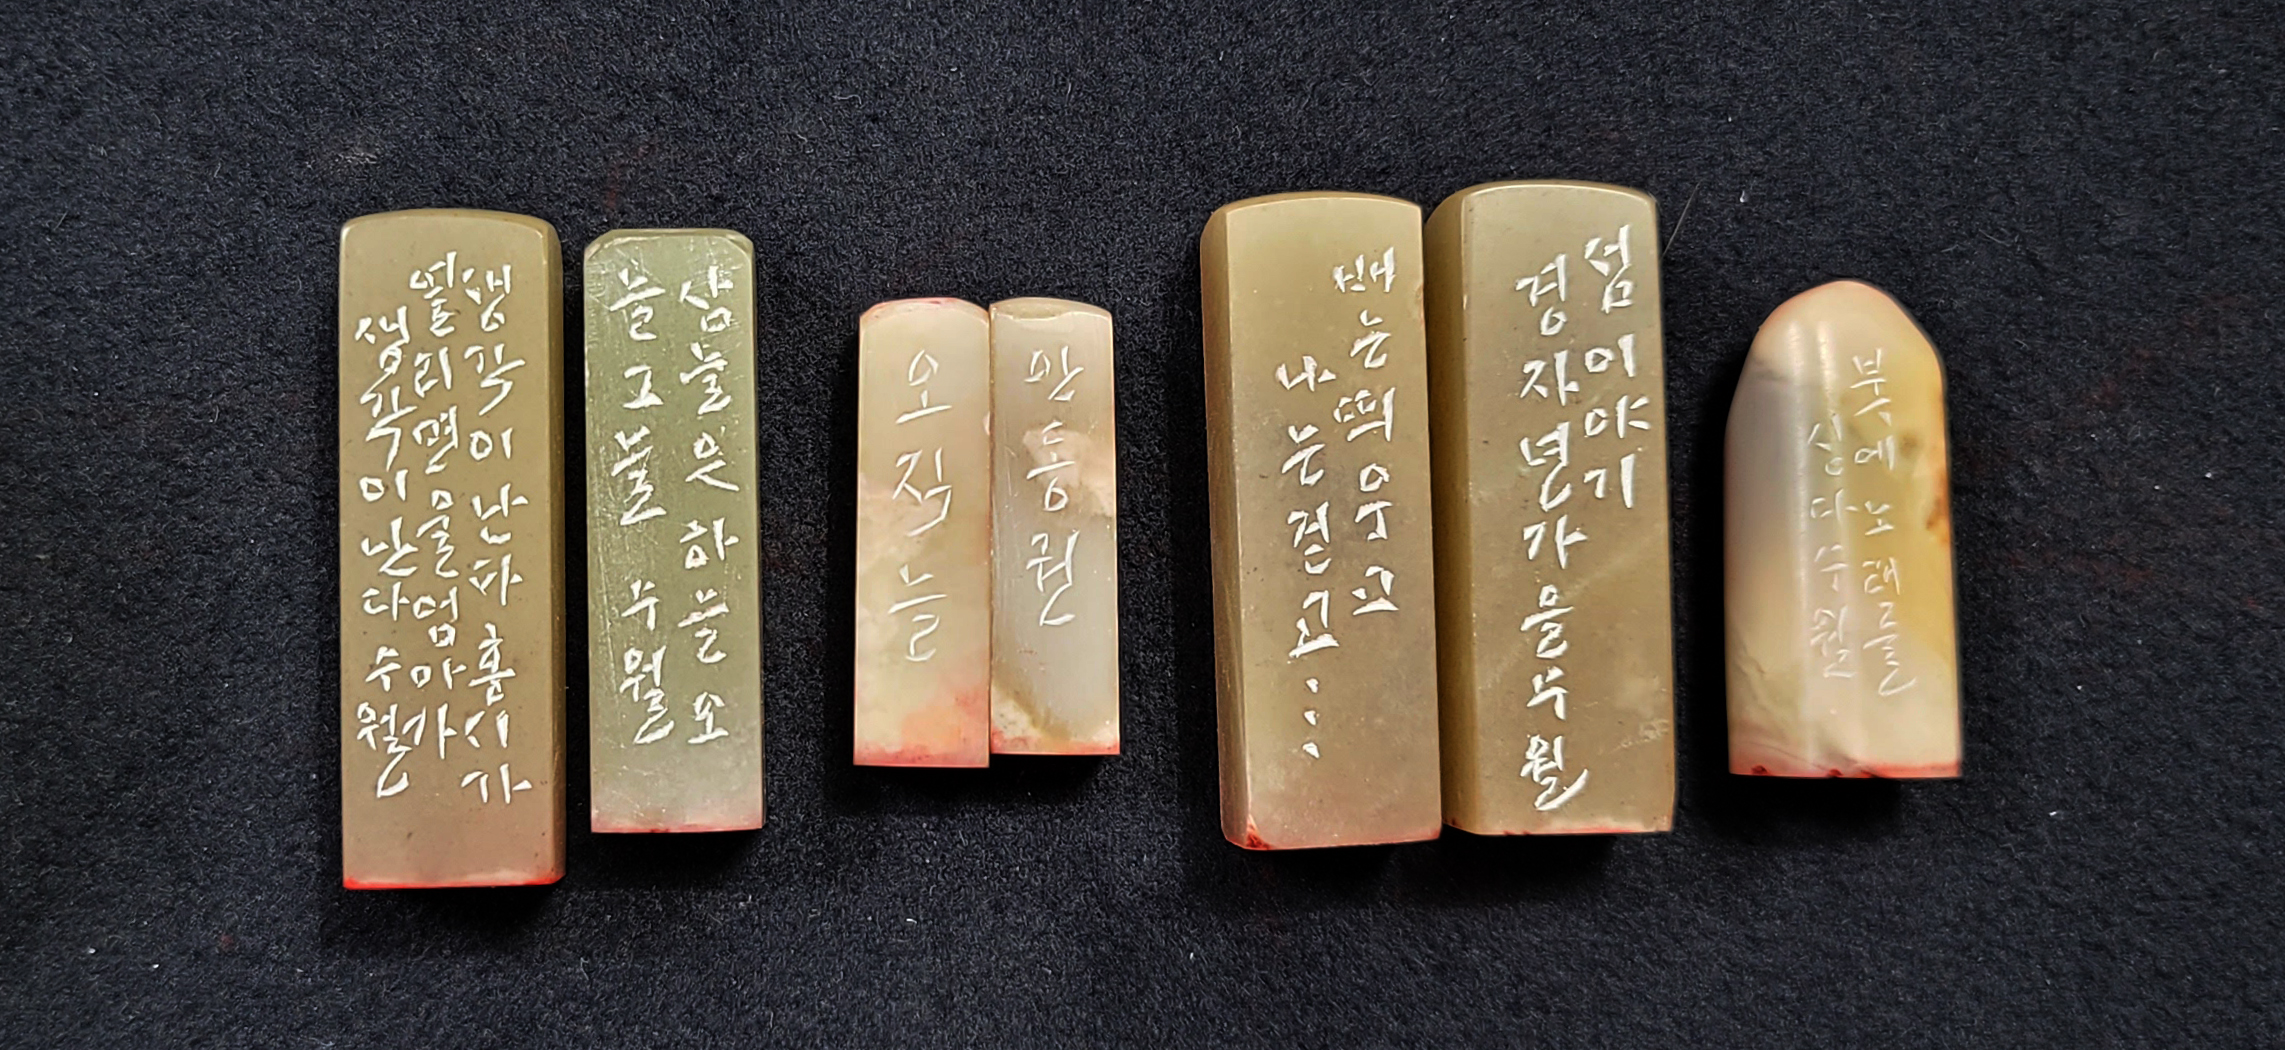 생각이 난다 홍시가
열리면 울엄마가
생각이 난다 수월
삼늘은 하늘 오
늘 그늘 수월
오직 늘
안동권
배는 띄우고
나는 걷고...
섬 이야기
경자년 가을 수월
북에 노래를
심다 수월